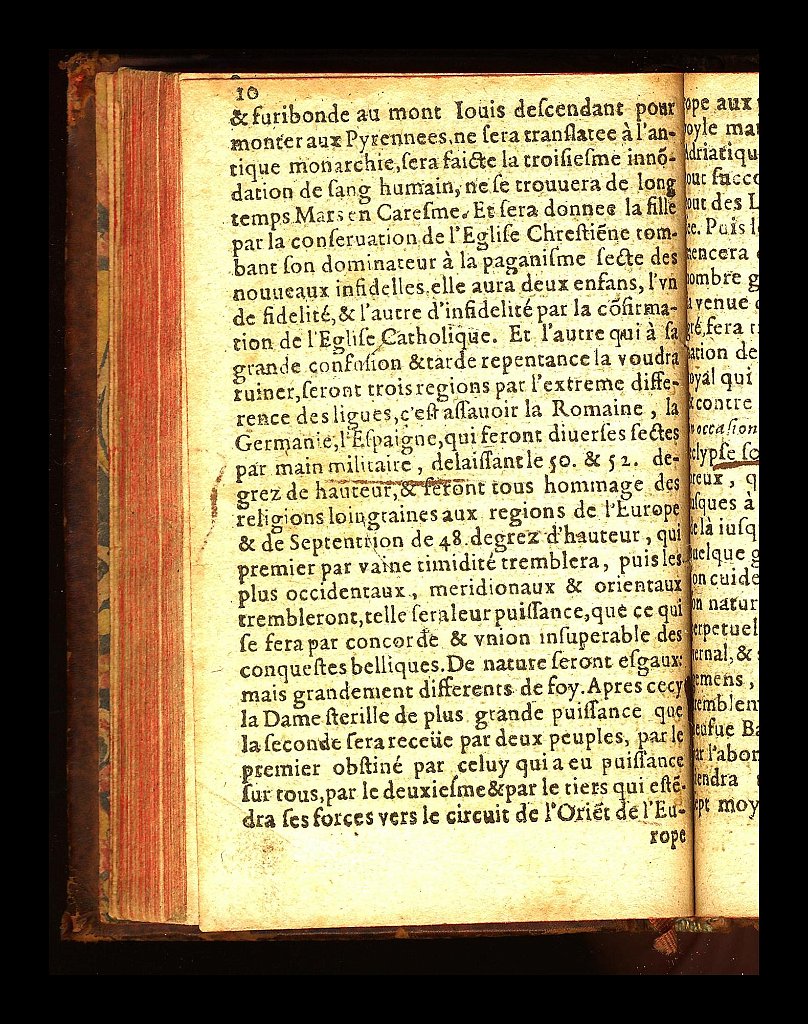 10
& furibonde au mont Iouis deſcendant pour
monter aux Pyrennees, ne ſera tranſlatee à l'an-
tique monarchie, ſera faicte la troiſieſme innō-
dation de ſang humain, ne ſe trouuera de long
temps Mars en Careſme. Et ſera donnee la fille
par la conſeruation de l'Egliſe Chreſtiēne tom-
bant ſon dominateur à la paganiſme ſecte des
nouueaux infidelles, elle aura deux enfans, l'vn
de fidelité, & l'autre d'infidelité par la cōfirma-
tion de l'Egliſe Catholique. Et l'autre qui à ſa
grande confuſion & tarde repentance la voudra
ruiner, ſeront trois regions par l'extreme diffe-
rence des ligues, c'eſt aſſauoir la Romaine, la
Germanie, l'Eſpaigne, qui feront diuerſes ſectes
par main militaire, delaiſſant le 50. & 52. de-
grez de hauteur, & feront tous hommage des
religions loingtaines aux regions de l'Europe
& de Septentrion de 48. degrez d'hauteur, qui
premier par vaine timidité tremblera, puis les
plus occidentaux, meridionaux & orientaux
trembleront, telle ſera leur puiſſance, que ce qui
ſe fera par concorde & vnion inſuperable des
conqueſtes belliques. De nature ſeront eſgaux:
mais grandement differents de foy. Apres cecy
la Dame ſterille de plus grande puiſſance que
la ſeconde ſera receüe par deux peuples, par le
premier obſtiné par celuy qui a eu puiſſance
ſur tous, par le deuxieſme & par le tiers qui eſtē-
dra ſes forces vers le circuit de l'Oriēt de l'Eu-
rope
ope aux
oyle
driatiqu
out ſucc
out des L
e. Puis
encera
ombre g
venue
ſera
ation de
oyal qui
contre
occaſion
clypſe ſo
reux, q
ſques à
là iuſq
uelque g
on cuide
on natur
erpetuel
ernal, &
emens,
remblem
eufue Ba
ar l'abor
iendra
ept moy